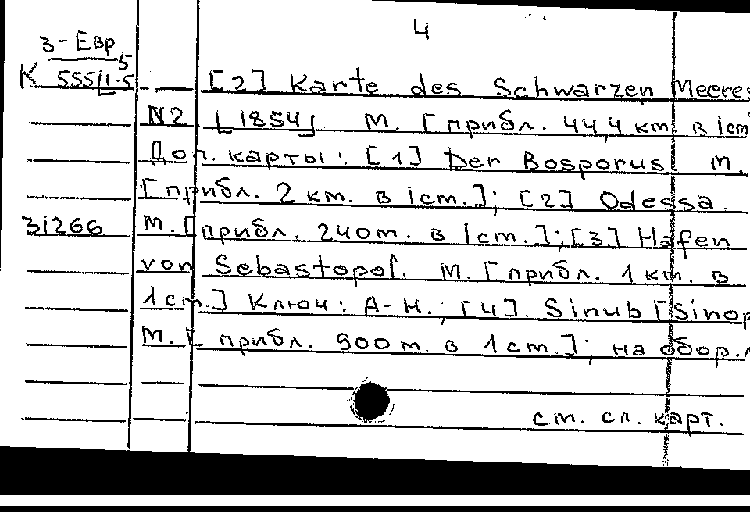 4
3-Евр
5
К 555/1-5
[2] Karte des Schwarzen Meeres
N2 [1854] М. [прибл. 44,4 км. в 1см
Доп. карты: [1] Der Bosporus М.
[прибл. 2 км. в 1см.]; [2] Odessa.
31266 М. [прибл. 240м. в 1см.]; [3] Hafen
von Sebastopol. М. [прибл. 1 км. в
1см.] Ключ: А-Н.; [4] Sinub [Sinop
М. [прибл. 900м. в 1см.]; на обор.л
см. сл. карт.